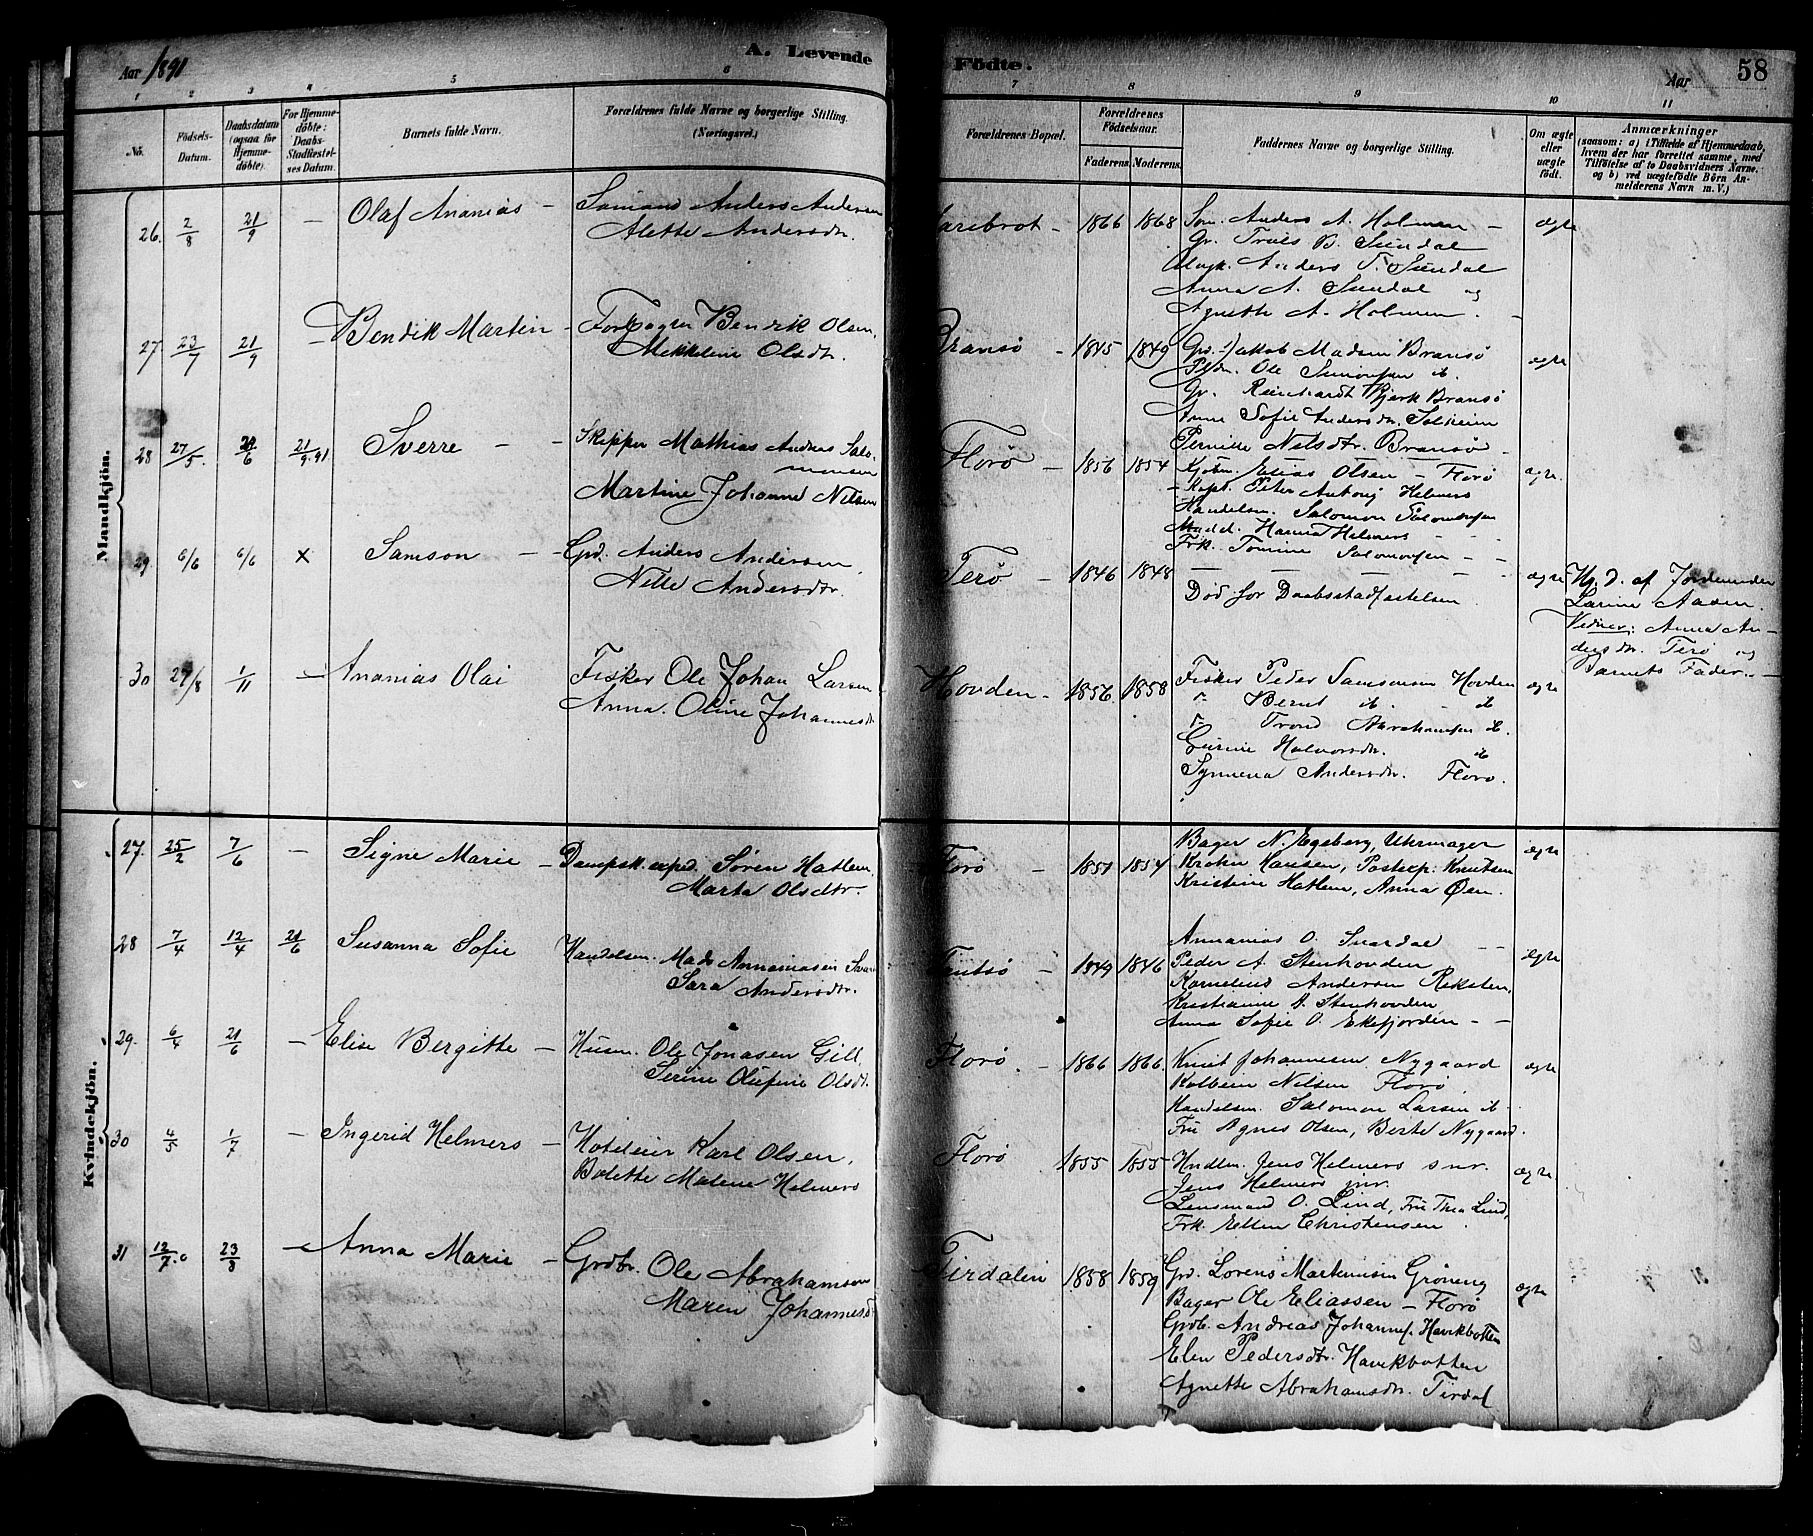 Aar 1891
A. Levende
Födte.
Aar
58
1 2 3 4 5 6 7 8 9 10 11
No.
Födsels-
Datum.
Daabsdatum
(ogsaa for
Hjemme-
döbte).
For Hjemme-
döbte:
Daabs-
Stadfæstel-
ses Datum.
Barnets fulde Navn.
Forældrenes fulde Navne og borgerlige Stilling.
(Næringsvei.)
Forældrenes Bopæl.
Forældrenes
Födselsaar.
Faderens. Moderens.
Faddernes Navne og borgerlige Stilling.
Om ægte
eller
uægte
födt.
Anmærkninger
(saasom: a) i Tilfælde af Hjemmedaab,
hvem der har forrettet samme, med
Tilföielse af to Daabsvidners Navne,
og b) ved uægtefödte Börn An-
melderens Navn m. V.)
Mandkjön.
26. 2/8 21/9 — Olaf Ananias —
Anders Andersen
Alette Andersdtr.
1866 1868 ægte
Som. Anders A. Holmen —
Gr. Truls B. Sundal
Anders T. Sundal
Anna A. Sundal og
Agnette A. Holmen. —
27. 23/7 21/9 — Bendik Martin —
Bendik Olsen,
Mekkeline Olsdtr.
Bransø — 1845 1849 ægte
Grd. Jakob Madsen Bransø
Ole Simonsen ib.
Gr. Reinhardt Bjerk Bransø
Anne Sofie Andersdtr. Solheim
Pernille Nelsdtr. Bransø —
28 27/5. 21/9.91 Sverre — —
Skipper Mathias Andreas Salo-
monsen
Martine Johanne Nilsen
Florø — 1856 1854 ægte.
Kjøbm. Elias Olsen — Florø
— Kapt. Peter Antonij Helmers
Handelsm. Salomon Salomonsen
Madd. Hanna Helmers — —
Frk. Tomine Salomonsen — —
29. 6/6 6/6 x Samson — —
Grd. Anders Andersen,
Nille Andersdtr.
Terø — 1846 1848 ægte
— — — — —
Død før Daabsstadfæstelsen.
Hj. d. af Jordemoder
Larine Aasen.
Vidner: Anna An-
dersdtr. Terø og
Barnets Fader. —
30 27/8 1/11 — Ananias Olai
Fisker Ole Johan Larsen
Anna Oline Johannesdtr
Hovden — 1856. 1858 ægte
Fisker Peder Samsonsen Hovden
" Bernt ib. — ib
" Trond Abrahamsen ib.
Halvorsdtr. ib
Andersdtr. Florø.
Kvindekjön.
27. 25/2 7/6 — Signe Marie —
Dampsk. exped. Søren Hatlem,
Marta Olsdtr.
Florø — 1851 1854 ægte
Bager N. Egeberg, Uhrmager
Krohn Hansen, Postexp. Knutsen
Kristine Hatlem, Anna Øen.
28 7/4 12/4 21/6 Susanna Sofie
Handelsm. Mads Annaniasen
Sara Andersdtr.
— 1849 1846 ægte
Annanias O. Svardal — —
Peder A. Stenhovden
Kornelius Andersen Reksten,
Kristianne A. Stenhovden
Anna Sofie O. Eikefjorden — —
29. 6/4 21/6 — Elise Bergitte —
Husm. Ole Jonasen Gill,
Serine Olufine Olsdtr.
Florø. — 1866 1866. ægte
Knut Johannesen Nygaard
Kolbein Nilsen Florø
Handelsm. Salomon Larsen ib.
Fru Agnes Olsen, Berte Nygaard.
30 4/5 1/7 — Ingerid Helmers —
Hoteleier Karl Olsen,
Bolette Malene Helmers
Florø 1855 1855 ægte
Hndlm. Jens Helmers snr.
Jens Helmers jnr.
Lensmand O. Lind, Fru Thea Lind,
Frk. Ellen Christensen.
31 12/7 23/8 — Anna Marie —
Grdbr. Ole Abrahamsen
Maren Johannesdtr
Tirdalen 1858 1859 ægte
Grd. Lorens Martinusen Grøneng
Bager Ole Eliassen — Florø
Grdb. Andreas Johannes. Haukbotten
Elen Pedersdtr. Haukbotten
Agnette Abrahamsdtr. Tirdal